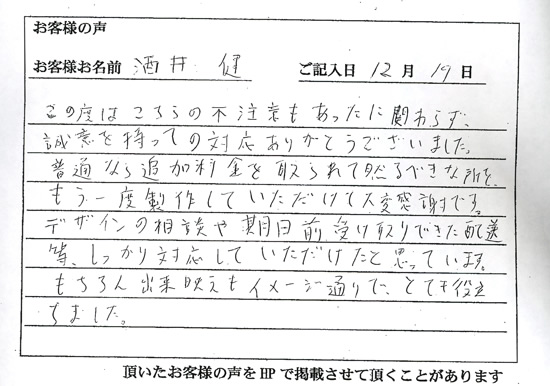 お客様の声
お客様お名前 酒井 健 ご記入日 12月 19日
この度はこちらの不注意もあったに関わらず、
誠意を持っての対応ありがとうございました。
普通なら追加料金を取られて然るべきな所を、
もう一度製作していただけて大変感謝です。
デザインの相談や期日前受け取りできた配送
等、しっかり対応していただけたと思っています。
もちろん出来映えもイメージ通りで、とても役立
ちました。
頂いたお客様の声をHPで掲載させて頂くことがあります